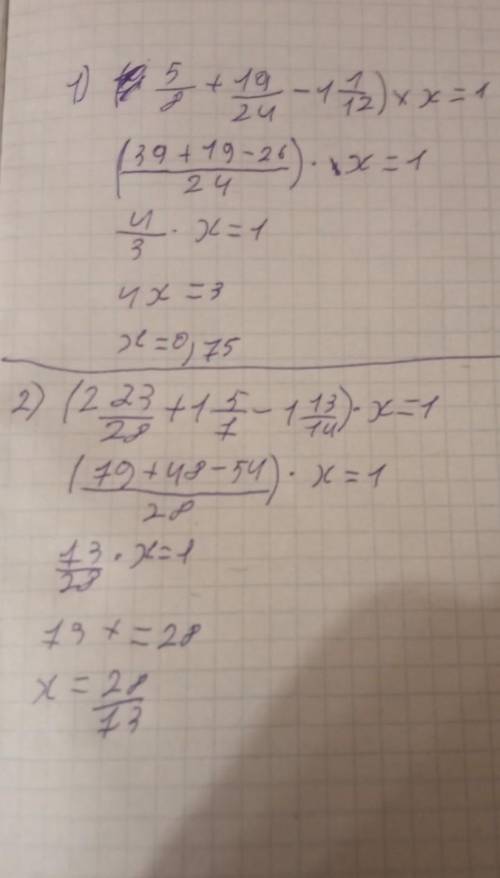 1) ( 5/8 + 19/24 - 1 1/12) × x = 1
(39 + 19 - 26 / 24) · x = 1
4/3 · x = 1
4x = 3
x = 0,75
2) (2 23/28 + 1 5/7 - 1 13/14) · x = 1
(79 + 48 - 54 / 28) · x = 1
73/28 · x = 1
73 x = 28
x = 28/73